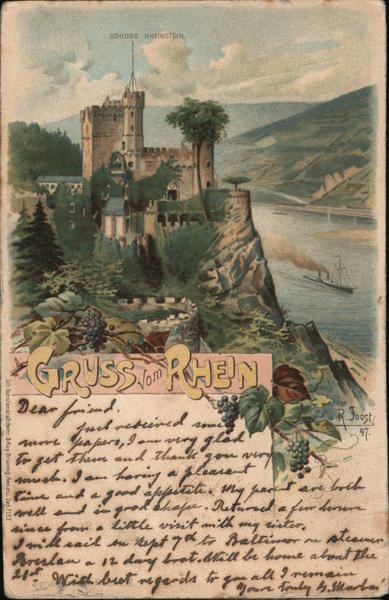 SCHLOSS RHEINSTEIN.
GRUSS vom RHEIN
R. Jost.
97.
Dear friend.
Just recieved some
more papers, I am very glad
to get them and thank you very
much. I am having a pleasant
time and a good appetite. My parent are both
well and in good shape. Returned a few hours
since from a little visit with my sister.
I will sail on Sept 7th to Baltimore on steamer
Breslau a 12 day boat. Will be home about the
21st With best regards to you all I remain
Yours truly